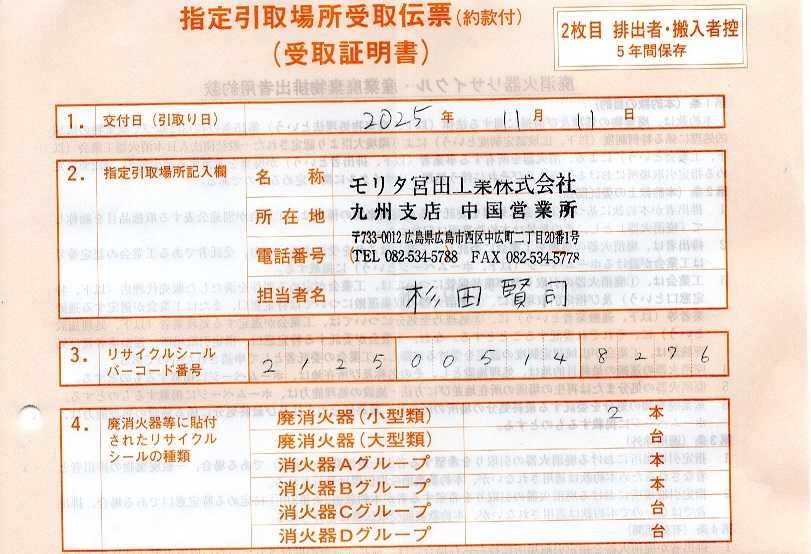 指定引取場所受取伝票(約款付)
(受取証明書)
2枚目 排出者・搬入者控
5年間保存
1. 交付日(引取り日) 2025 年 11 月 11 日
2. 指定引取場所記入欄
名称 モリタ宮田工業株式会社
所在地 九州支店 中国営業所
〒733-0012 広島県広島市西区中広町二丁目20番1号
電話番号 (TEL 082-534-5788 FAX 082-534-5778
担当者名 杉田賢司
3. リサイクルシール
バーコード番号 2125005148276
4. 廃消火器等に貼付
されたリサイクル
シールの種類
廃消火器(小型類) 2 本
廃消火器(大型類) 台
消火器Aグループ 本
消火器Bグループ 本
消火器Cグループ 台
消火器Dグループ 台